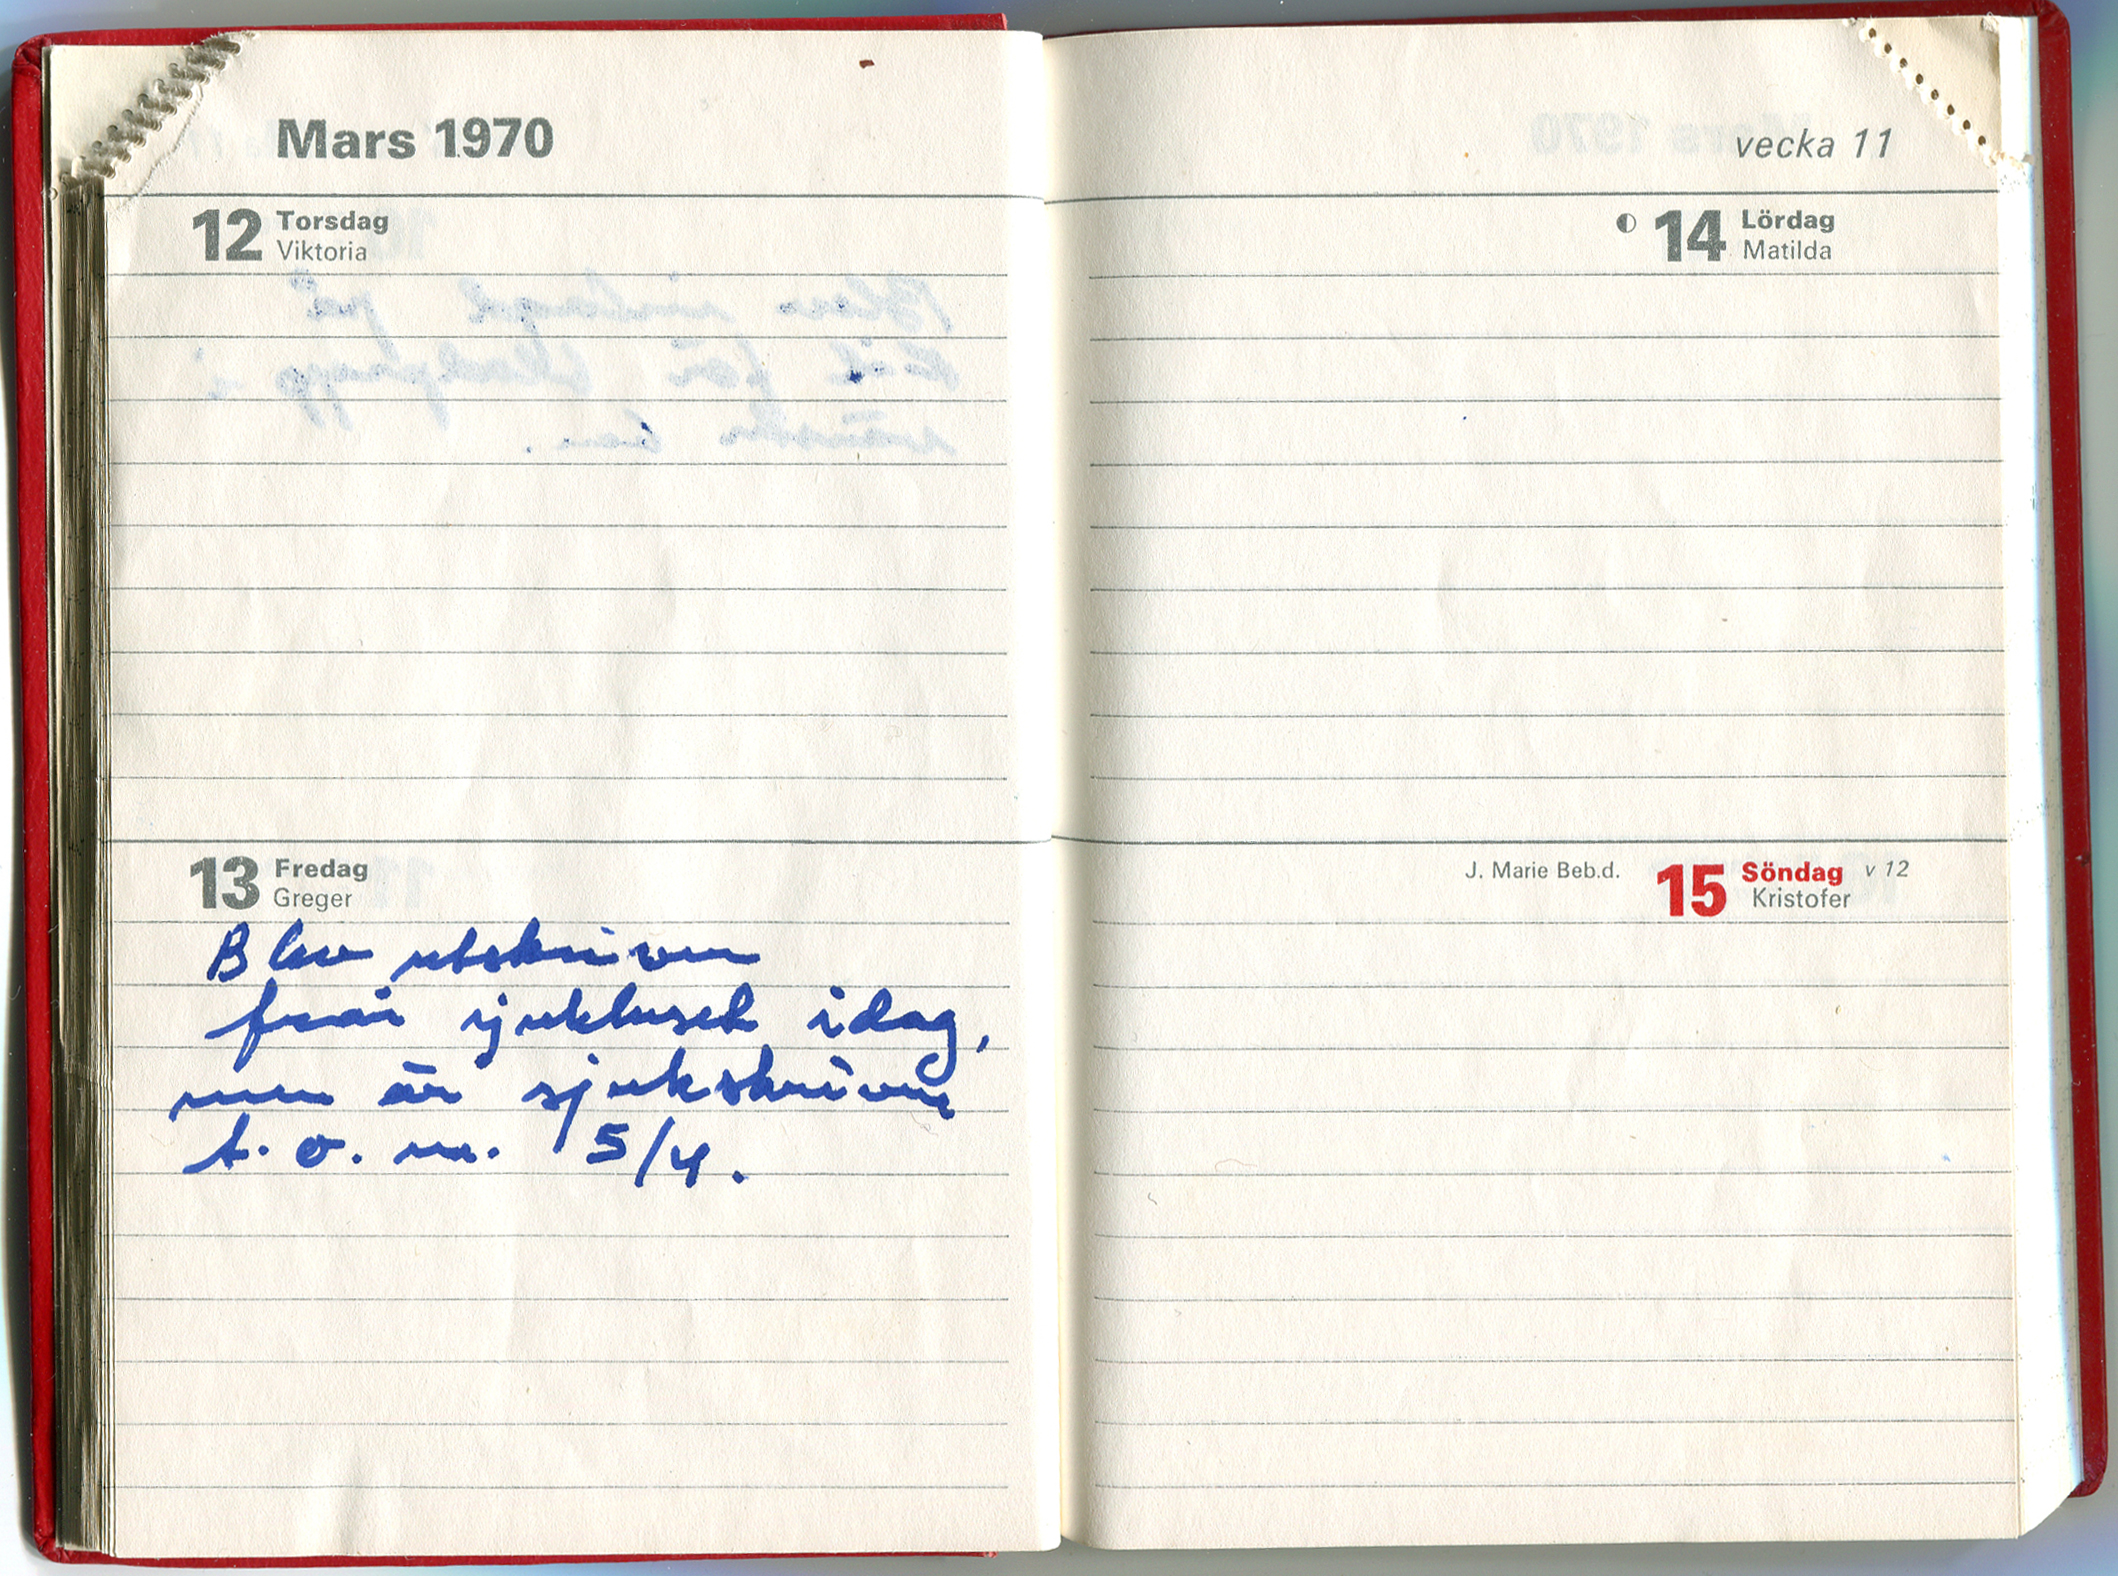 Mars 1970
12 Torsdag
Viktoria
13 Fredag
Greger
Blev utskriven
från sjukhuset idag,
men är sjukskriven
t.o.m. 5/4.
vecka 11
14 Lördag
Matilda
J. Marie Beb.d. 15 Söndag v 12
Kristofer